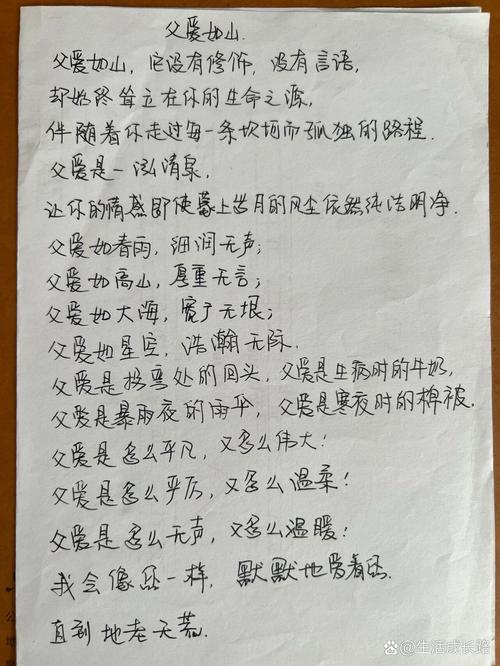 父爱如山.
父爱如山，它没有修饰，没有言语，
却始终耸立在你的生命之源，
伴随着你走过每一条坎坷而孤独的路程.
父爱是一泓清泉，
让你的情感即使蒙上岁月的风尘依然纯洁明净.
父爱如春雨，细润无声；
父爱如高山，厚重无言；
父爱如大海，宽广无垠；
父爱如星空，浩瀚无际.
父爱是拐弯处的回头，父爱是生病时的牛奶，
父爱是暴雨夜的雨伞，父爱是寒夜时的棉被.
父爱是多么平凡，又多么伟大！
父爱是多么严厉，又多么温柔！
父爱是多么无声，又多么温暖！
我会像 一样，默默地爱着
直到地老天荒.
公
地
@生活成长路